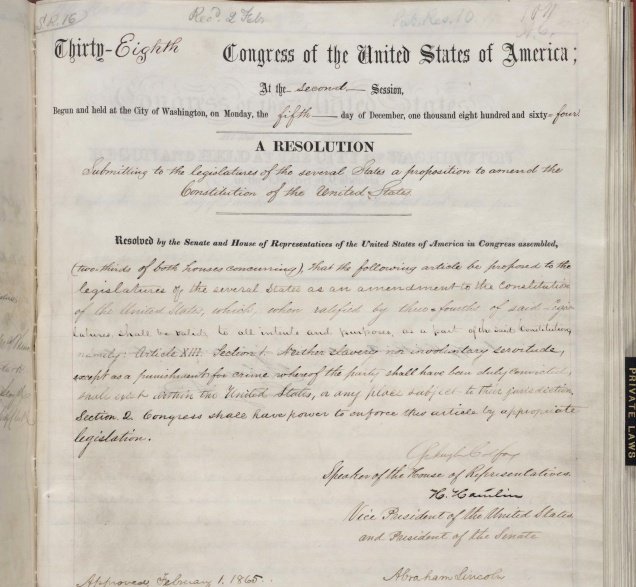 (S.R. 16)
Rec'd. 2 Feb
Pub. Res. 10
Thirty-Eighth Congress of the United States of America;
At the second Session,
Begun and held at the City of Washington, on Monday, the fifth day of December, one thousand eight hundred and sixty-four.
A RESOLUTION
Submitting to the legislatures of the several States a proposition to amend the
Constitution of the United States.
Resolved by the Senate and House of Representatives of the United States of America in Congress assembled,
(two-thirds of both houses concurring), that the following article be proposed to the
legislatures of the several States as an amendment to the Constitution
of the United States, which, when ratified by three-fourths of said Legis-
latures, shall be valid, to all intents and purposes, as a part of the said Constitution,
namely: Article XIII. Section 1. Neither slavery nor involuntary servitude,
except as a punishment for crime whereof the party shall have been duly convicted,
shall exist within the United States, or any place subject to their jurisdiction.
Section 2. Congress shall have power to enforce this article by appropriate
legislation.
Schuyler Colfax
Speaker of the House of Representatives.
H. Hamlin
Vice President of the United States
and President of the Senate
Approved, February 1. 1865.
Abraham Lincoln
PRIVATE LAWS